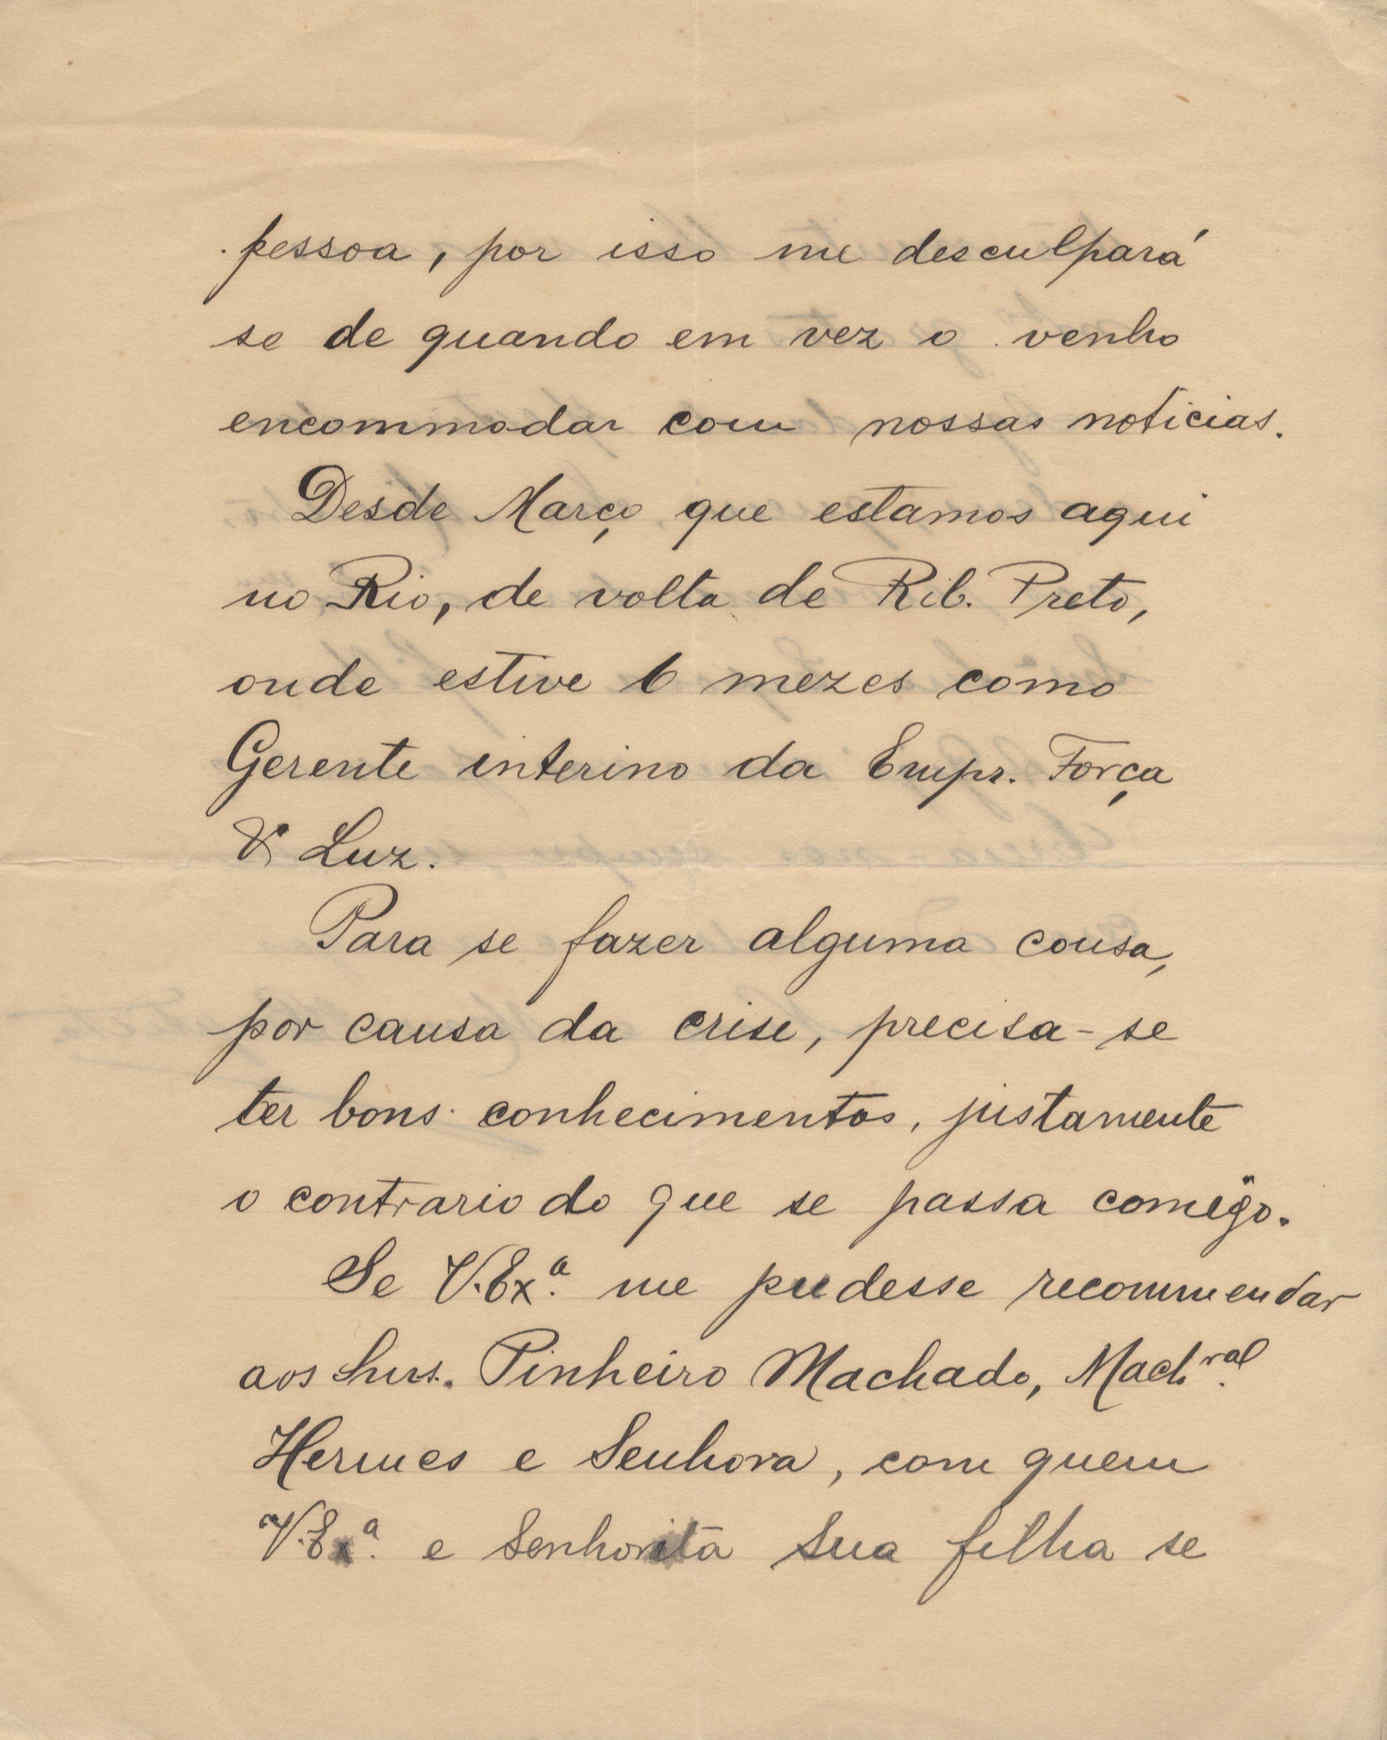 pessoa, por isso me desculpará
se de quando em vez o venho
encommodar com nossas noticias.
Desde Março que estamos aqui
no Rio, de volta de Rib. Preto,
onde estive 6 mezes como
Gerente interino da Empr. Força
& Luz.
Para se fazer alguma cousa,
por causa da crise, precisa-se
ter bons conhecimentos, justamente
o contrario do que se passa comigo.
Se V.Exª. me pudesse recommendar
aos Snrs. Pinheiro Machado, Mach.ral
Hermes e Senhora, com quem
V.Exª. e Senhorita Sua filha se